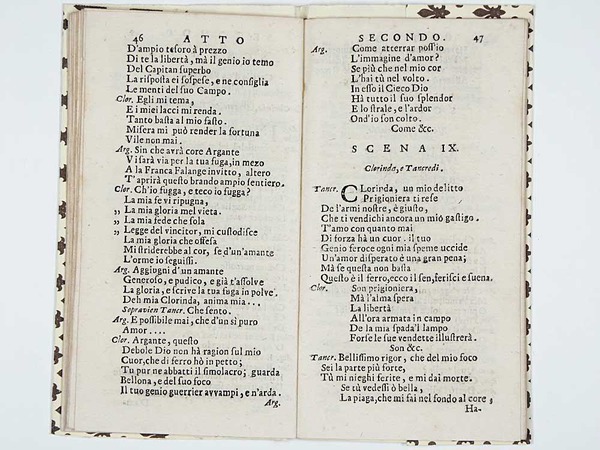 46 ATTO
D'ampio tesoro à prezzo
Di te la libertà, mà il genio io temo
Del Capitan superbo
La risposta ei sospese, e ne consiglia
Le menti del suo Campo.
Clor. Egli mi tema,
E i miei lacci mi renda.
Tanto basta al mio fasto.
Misera mi può render la fortuna
Vile non mai.
Arg. Sin che avrà core Argante
Vi sarà via per tua fuga, in mezo
A la Franca Falange invitto, altero
T'aprirà questo brando ampio sentiero.
Clor. Ch'io fugga, e teco io fugga?
La mia fe vi ripugna,
„ La mia gloria mel vieta.
„ La mia fede che sola
„ Legge del vincitor, mi custodisce
La mia gloria che offesa
Mi striderebbe al cor, se d'un'amante
L'orme io seguissi.
Arg. Aggiogni d'un amante
Generoso, e pudico, e già t'assolve
La gloria, e scrive la tua fuga in polve.
Deh mia Clorinda, anima mia...
Sopravien Tancr. Che sento.
Arg. E possibile mai, che d'un sì puro
Amor....
Clor. Argante, questo
Debole Dio non hà ragion sul mio
Cuor, che di ferro hò in petto;
Tu pur ne abbatti il simolacro; guarda
Bellona, e del suo foco
Il tuo genio guerrier avvampi, e n'arda.
Arg.
SECONDO. 47
Arg. Come atterrar poss'io
L'immagine d'amor?
Se più che nel mio cor
L'hai tù nel volto.
In esso il Cieco Dio
Hà tutto il suo splendor
E lo strale, e l'ardor
Ond'io son colto.
Come &c.
SCENA IX.
Clorinda, e Tancredi.
Tancr. CLorinda, un mio delitto
Prigioniera ti rese
De l'armi nostre, è giusto,
Che ti vendichi ancora un mio gastigo.
T'amo con quanto mai
Di forza hà un cuor. il tuo
Genio feroce ogni mia speme uccide
Un'amor disperato è una gran pena;
Mà se questa non basta
Questo è il ferro, ecco il sen, ferisci e svena.
Clor. Son prigioniera,
Mà l'alma spera
La libertà
All'ora armata in campo
De la mia spada'l lampo
Forse le sue vendette illustrerà.
Son &c.
Tancr. Bellissimo rigor, che del mio foco
Sei la parte più forte,
Tù mi nieghi ferite, e mi dai morte.
Se tù vedessi ò bella,
La piaga, che mi fai nel fondo al core,
Ha-